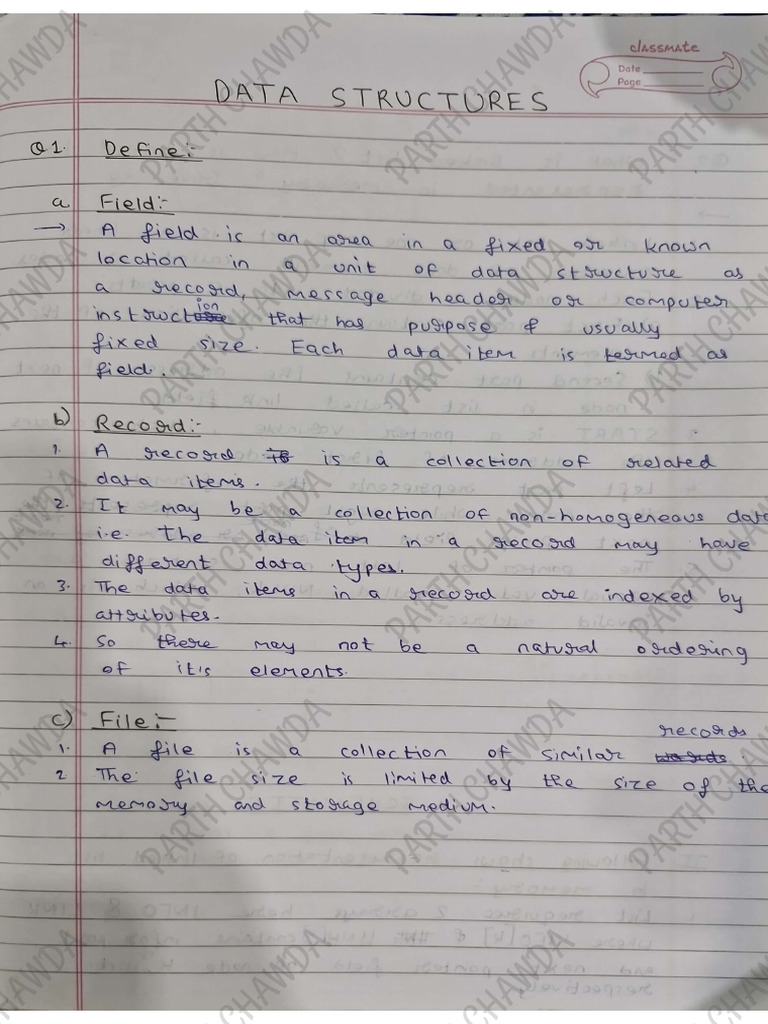 classmate
Date
Page
DATA STRUCTURES
Q1. Define:-
a Field:-
→ A field is an area in a fixed or known
location in a unit of data structure as
a record, message header or computer
instruction that has purpose & usually
fixed size. Each data item is termed as
field.
b) Record:-
1. A record is a collection of related
data items.
2. It may be a collection of non-homogeneous data
i.e. the data item in a record may have
different data types.
3. The data items in a record are indexed by
attributes.
4. So there may not be a natural ordering
of it's elements.
c) File:-
1. A file is a collection of similar records.
2 The file size is limited by the size of the
memory and storage medium.
PARTH CHAWDA